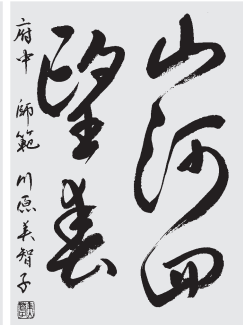 山河四
望春
府中 師範 川原美智子